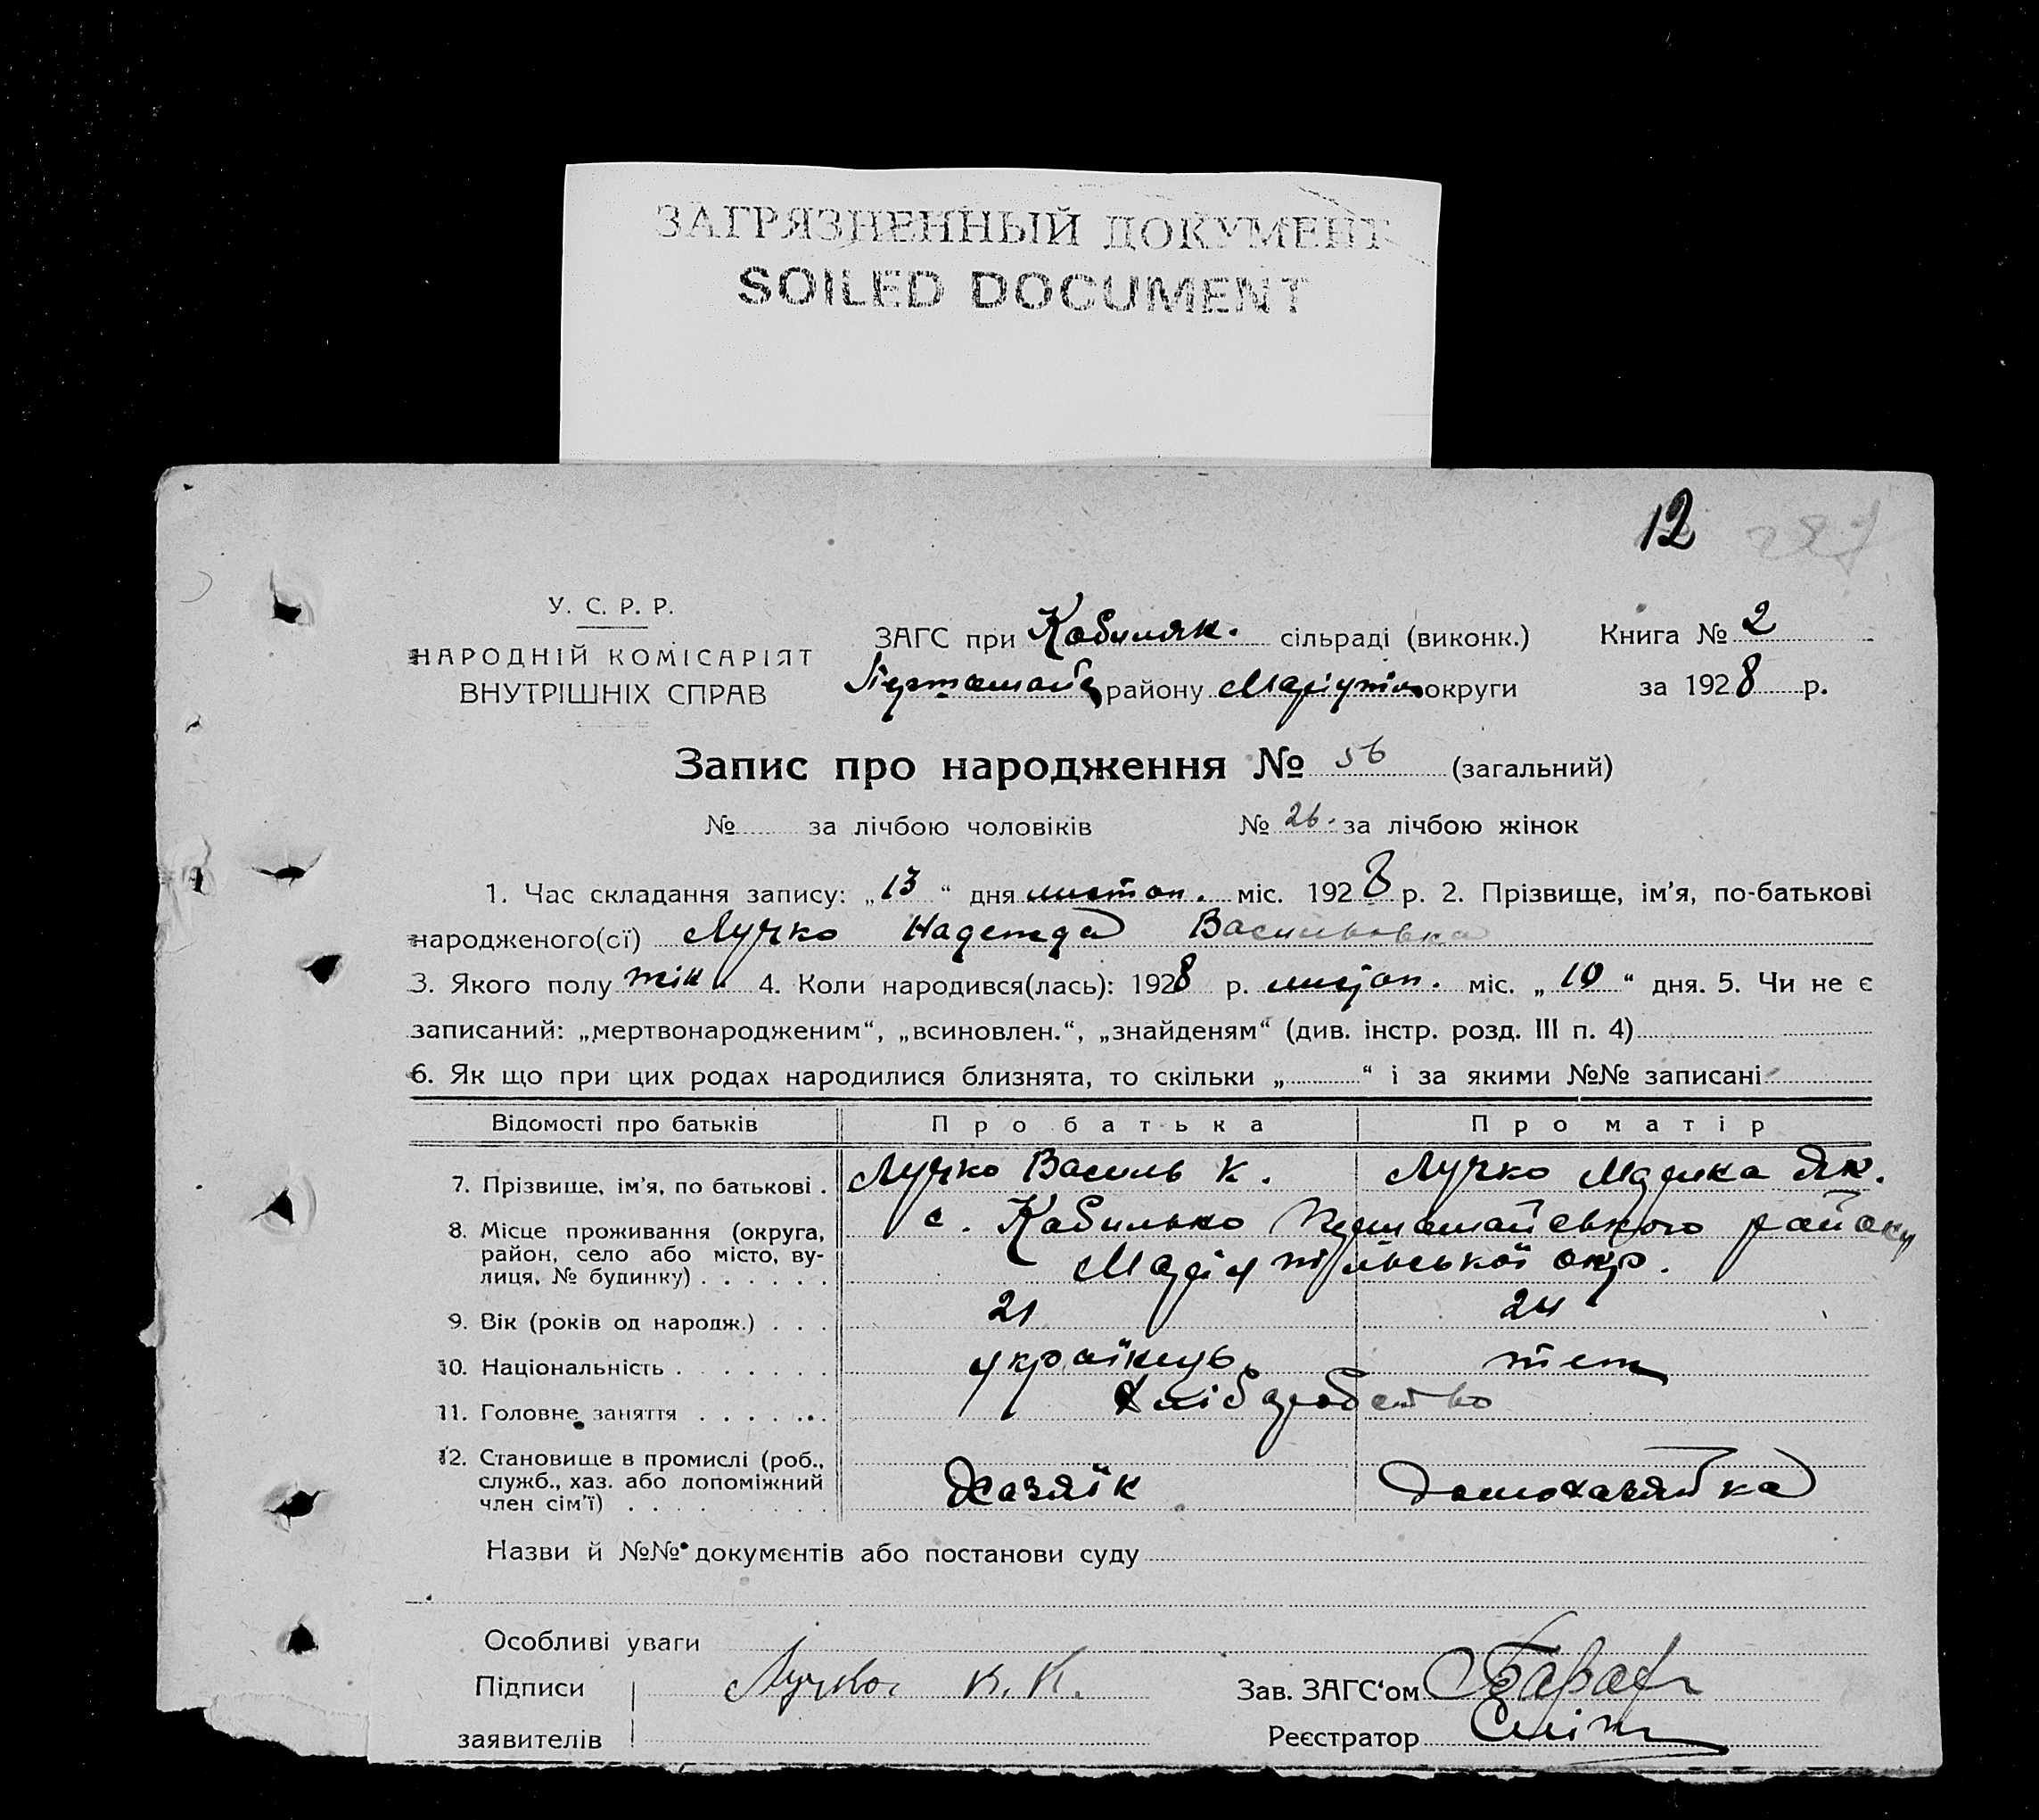 ЗАГРЯЗНЕННЫЙ ДОКУМЕНТ
SOILED DOCUMENT
12
У. С. Р. Р.
НАРОДНІЙ КОМІСАРІЯТ
ВНУТРІШНІХ СПРАВ
ЗАГС при Кобиляк. сільраді (виконк.)
Першомай району Маріупіл округи
Книга № 2
за 1928 р.
Запис про народження № 56 (загальний)
№ за лічбою чоловіків № 26. за лічбою жінок
1. Час складання запису: „13“ дня листоп. міс. 1928 р. 2. Прізвище, ім’я, по-батькові
народженого(сї) Лучко Надежда Васильовка
3. Якого полу жін. 4. Коли народився(лась): 1928 р. листоп. міс. „10“ дня. 5. Чи не є
записаний: „мертвонародженим“, „всиновлен.“, „знайденям“ (див. інстр. розд. III п. 4)
6. Як що при цих родах народилися близнята, то скільки „ “ і за якими №№ записані
Відомості про батьків Про батька Про матір
7. Прізвище, ім’я, по батькові . Лучко Василь К. Лучко Марика Як.
8. Місце проживання (округа, район, село або місто, ву-лиця, № будинку) . . . . . .
с. Кобилько Першомайського району
Маріупільської окр.
9. Вік (років од народж.) . . . 21 24
10. Національність . . . . . . . українець теж
11. Головне заняття . . . . . . Хліборобство
12. Становище в промислі (роб., служб., хаз. або допоміжний член сім’ї) . .
Хазяїн домохазяйка
Назви й №№ документів або постанови суду
Особливі уваги
Підписи
заявителів
Лучко К. К.
Зав. ЗАГС‘ом
Реєстратор